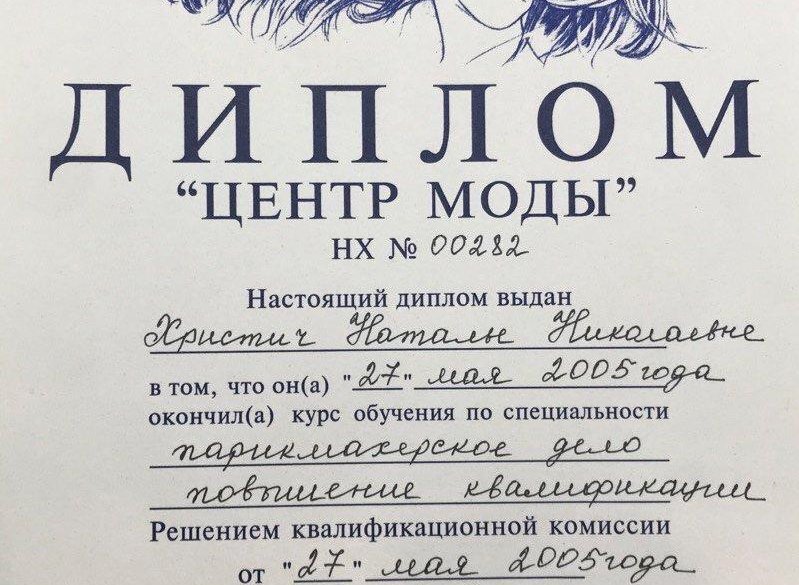 ДИПЛОМ
“ЦЕНТР МОДЫ”
НХ № 00282
Настоящий диплом выдан
Христич Наталье Николаевне
в том, что он(а) "27" мая 2005 года
окончил(а) курс обучения по специальности
парикмахерское дело
повышение квалификации
Решением квалификационной комиссии
от "27" мая 2005 года